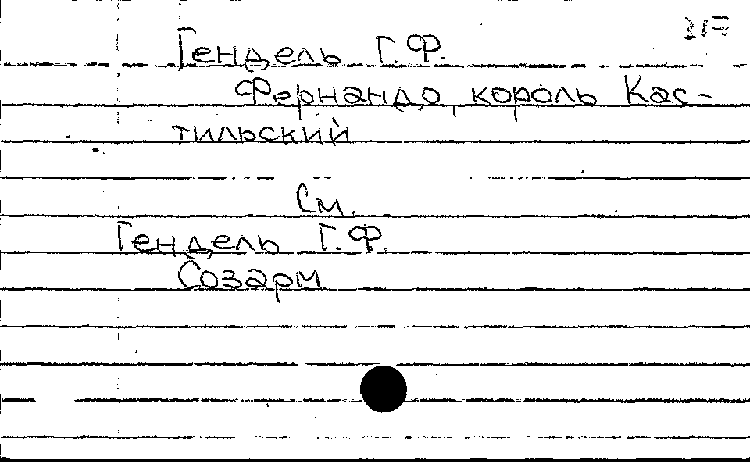 Гендель Г.Ф.
Фернандо, король Кас-
тильский
См.
Гендель Г.Ф.
Созарм